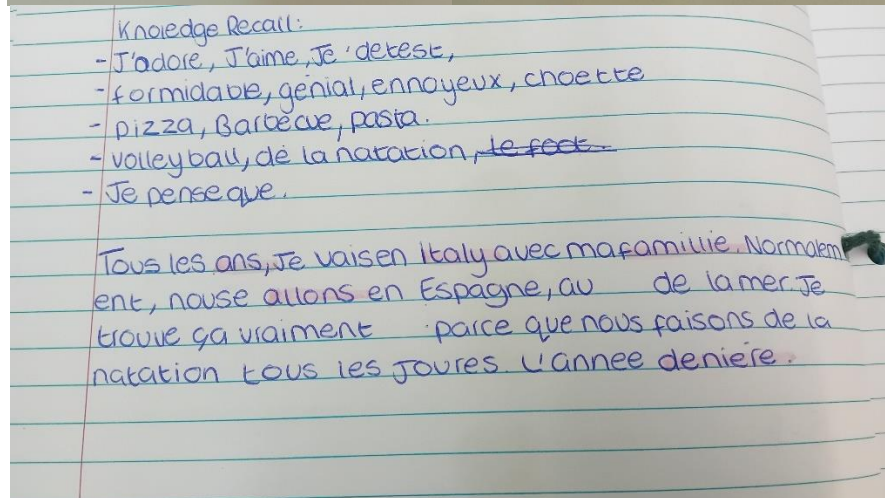 Knoledge Recall:
- J'adore, J'aime, Je detest,
- formidable, génial, ennoyeux, choette
- pizza, Barbécue, pasta.
- volleyball, de la natation, le foot
- Je pense que.
Tous les ans, Je vais en Italy avec ma famillie. Normalem
ent, nouse allons en Espagne, au de la mer. Je
trouve ça vraiment parce que nous faisons de la
natation tous les Joures. L'annee deniere.